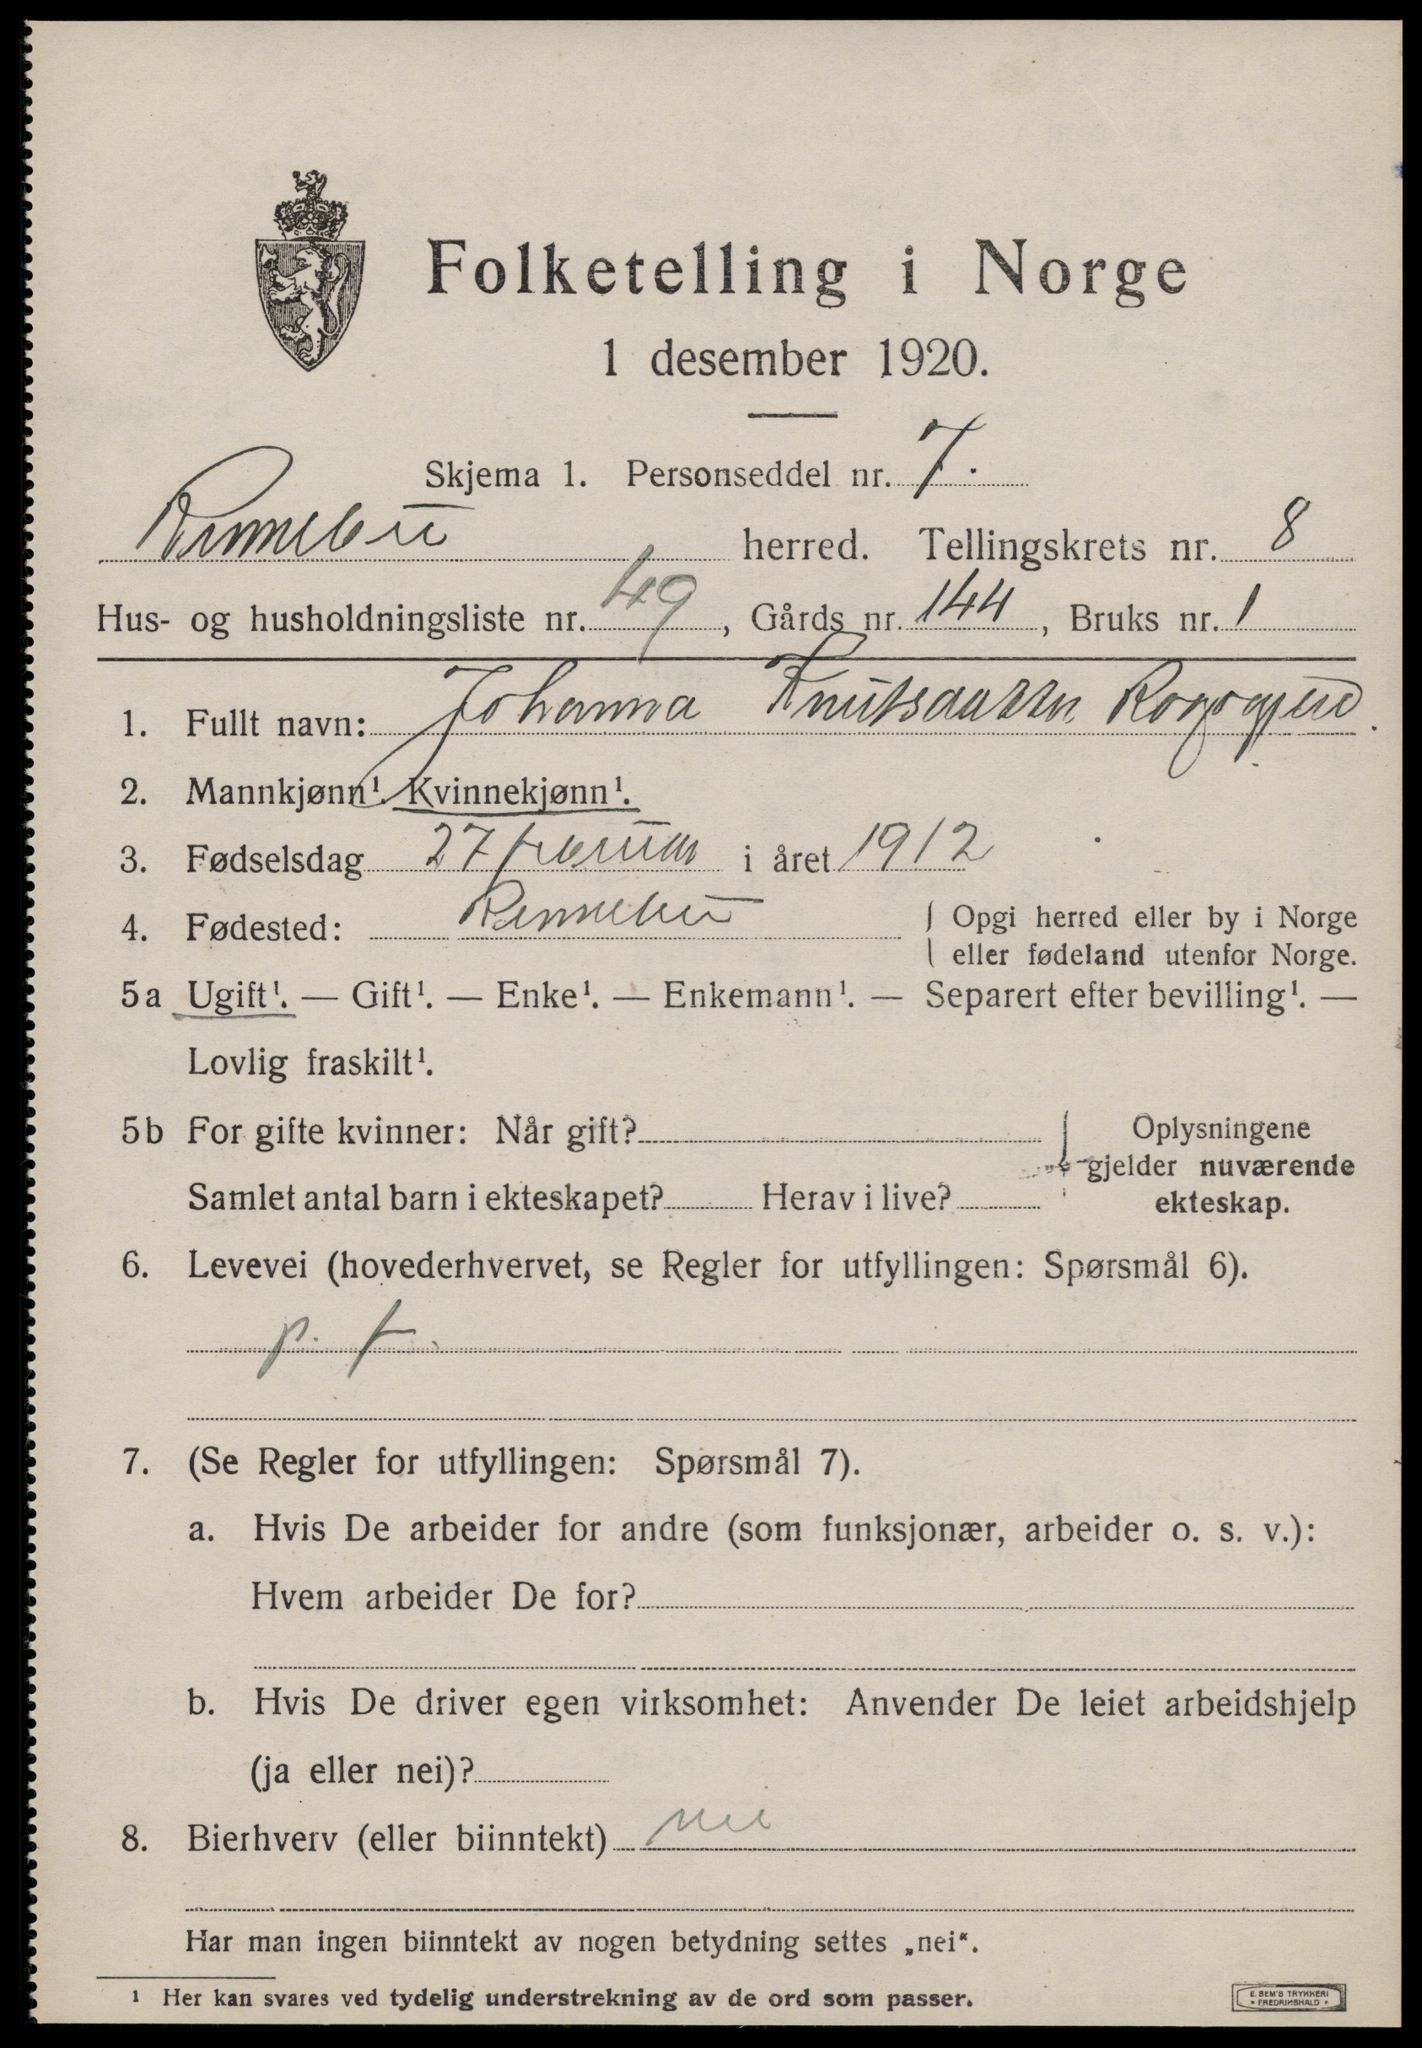 Folketelling i Norge
1 desember 1920.
Skjema 1. Personseddel nr. 7.
Rennebu herred. Tellingskrets nr. 8
Hus- og husholdningsliste nr. 49, Gårds nr. 144, Bruks nr. 1
1. Fullt navn: Johanna Knutsdatter
2. Mannkjønn¹. Kvinnekjønn¹.
3. Fødselsdag 27 i året 1912
4. Fødested: Rennebu
Opgi herred eller by i Norge
eller fødeland utenfor Norge.
5a Ugift¹. — Gift¹. — Enke¹. — Enkemann¹. — Separert efter bevilling¹. —
Lovlig fraskilt¹.
5b For gifte kvinner: Når gift?
Samlet antal barn i ekteskapet? Herav i live?
Oplysningene
gjelder nuværende
ekteskap.
6. Levevei (hovederhvervet, se Regler for utfyllingen: Spørsmål 6).
p. f.
7. (Se Regler for utfyllingen: Spørsmål 7).
a. Hvis De arbeider for andre (som funksjonær, arbeider o. s. v.):
Hvem arbeider De for?
b. Hvis De driver egen virksomhet: Anvender De leiet arbeidshjelp
(ja eller nei)?
8. Bierhverv (eller biinntekt) nei
Har man ingen biinntekt av nogen betydning settes „nei“.
¹ Her kan svares ved tydelig understrekning av de ord som passer.
E. SEM'S TRYKKERI
• FREDRIKSHALD •